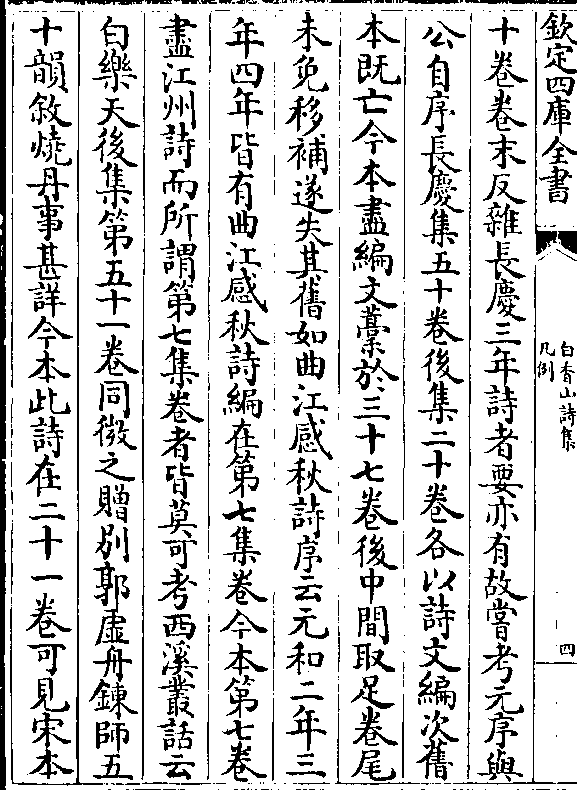 欽定四庫全書
白香山詩集
凡例
四
十卷卷末反雜長慶三年詩者要亦有故嘗考元序與
公自序長慶集五十卷後集二十卷各以詩文編次舊
本既亡今本盡編文藁於三十七卷後中間取足卷尾
未免移補遂失其舊如曲江感秋詩序云元和二年三
年四年皆有曲江感秋詩編在第七集卷今本第七卷
盡江州詩而所謂第七集卷者皆莫可考西溪叢話云
白樂天後集第五十一卷同微之贈别郭虛舟鍊師五
十韻敘燒丹事甚詳今本此詩在二十一卷可見宋本